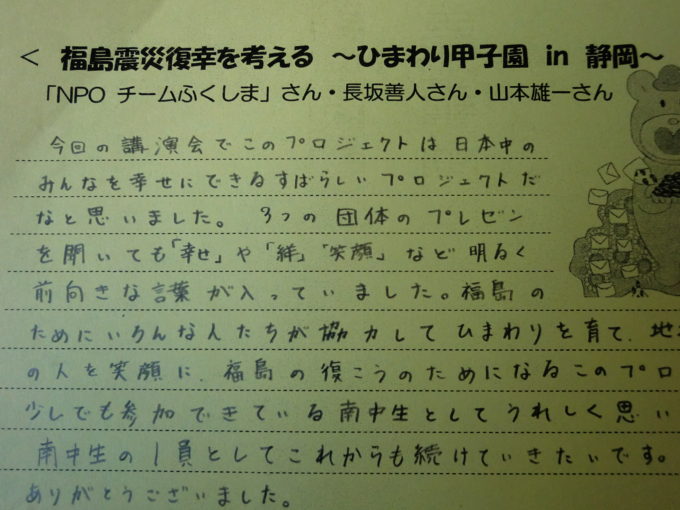 < 福島震災復幸を考える ～ひまわり甲子園 in 静岡～
「NPO チームふくしま」さん・長坂善人さん・山本雄一さん
今回の講演会でこのプロジェクトは日本中の
みんなを幸せにできるすばらしいプロジェクトだ
なと思いました。 3つの団体のプレゼン
を聞いても「幸せ」や「絆」「笑顔」など明るく
前向きな言葉が入っていました。福島の
ためにいろんな人たちが協力してひまわりを育て、地
の人を笑顔に、福島の復こうのためになるこのプロ
少しでも参加できている南中生としてうれしく思い
南中生の1員としてこれからも続けていきたいです。
ありがとうございました。